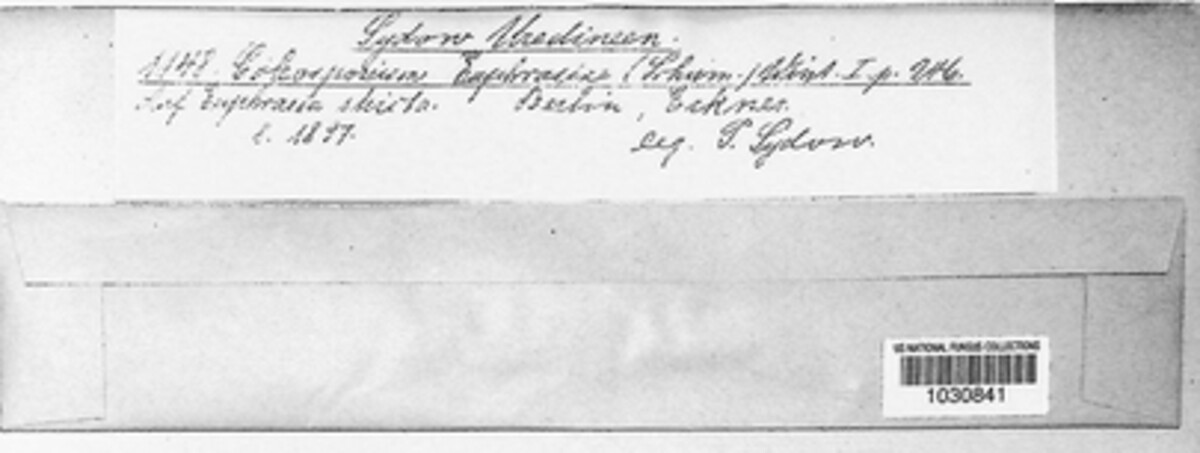 Sydow Uredineen.
1148. Coleosporium Euphrasiae (Schum.) Wint. I. p. 246.
Auf Euphrasia stricta. Berlin, Erkner.
1897.
leg. P. Sydow.
US NATIONAL FUNGUS COLLECTIONS
1030841